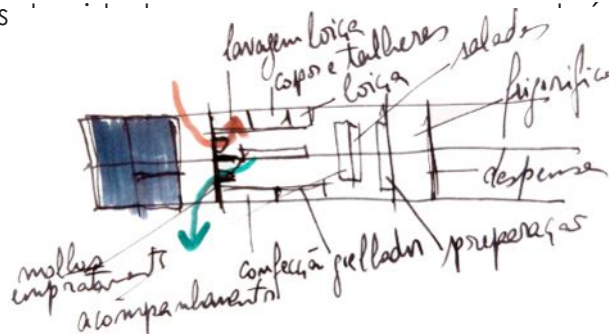 s
lavagem loiça
copos e talheres
loiça
saladas
frigorífico
despensa
preparação
grelhador
confecção
acompanhamento
molhos
empratamento